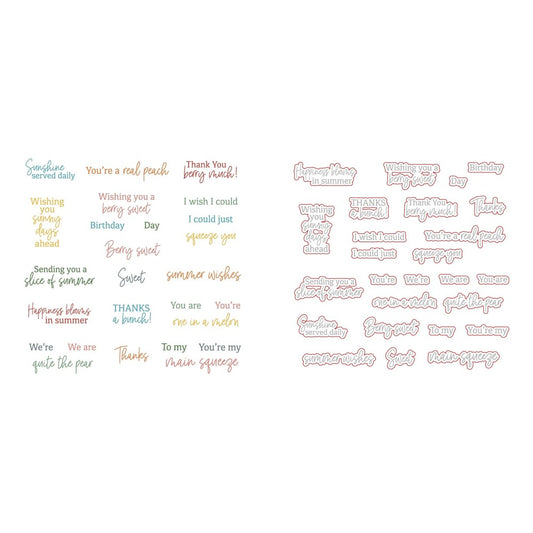 Sunshine
served daily
You're a real peach
Thank You
berry much!
Wishing
you
sunny
days
ahead
Wishing you a
berry sweet
Birthday Day
Berry sweet
I wish I could
I could just
squeeze you
Sending you a
slice of summer
Sweet
summer wishes
Happiness blooms
in summer
THANKS
a bunch!
You are You're
one in a melon
We're We are
quite the pear
Thanks
To my You're my
main squeeze
Happiness blooms
in summer
Wishing you a
berry sweet
Birthday
Day
Wishing
you
sunny
days
ahead
THANKS
a bunch!
Thank You
berry much!
Thanks
I wish I could
You're a real peach
I could just
squeeze you
Sending you a
slice of summer
You're We're We are You are
one in a melon
quite the pear
Sunshine
served daily
Berry sweet
To my
You're my
summer wishes
Sweet
main squeeze